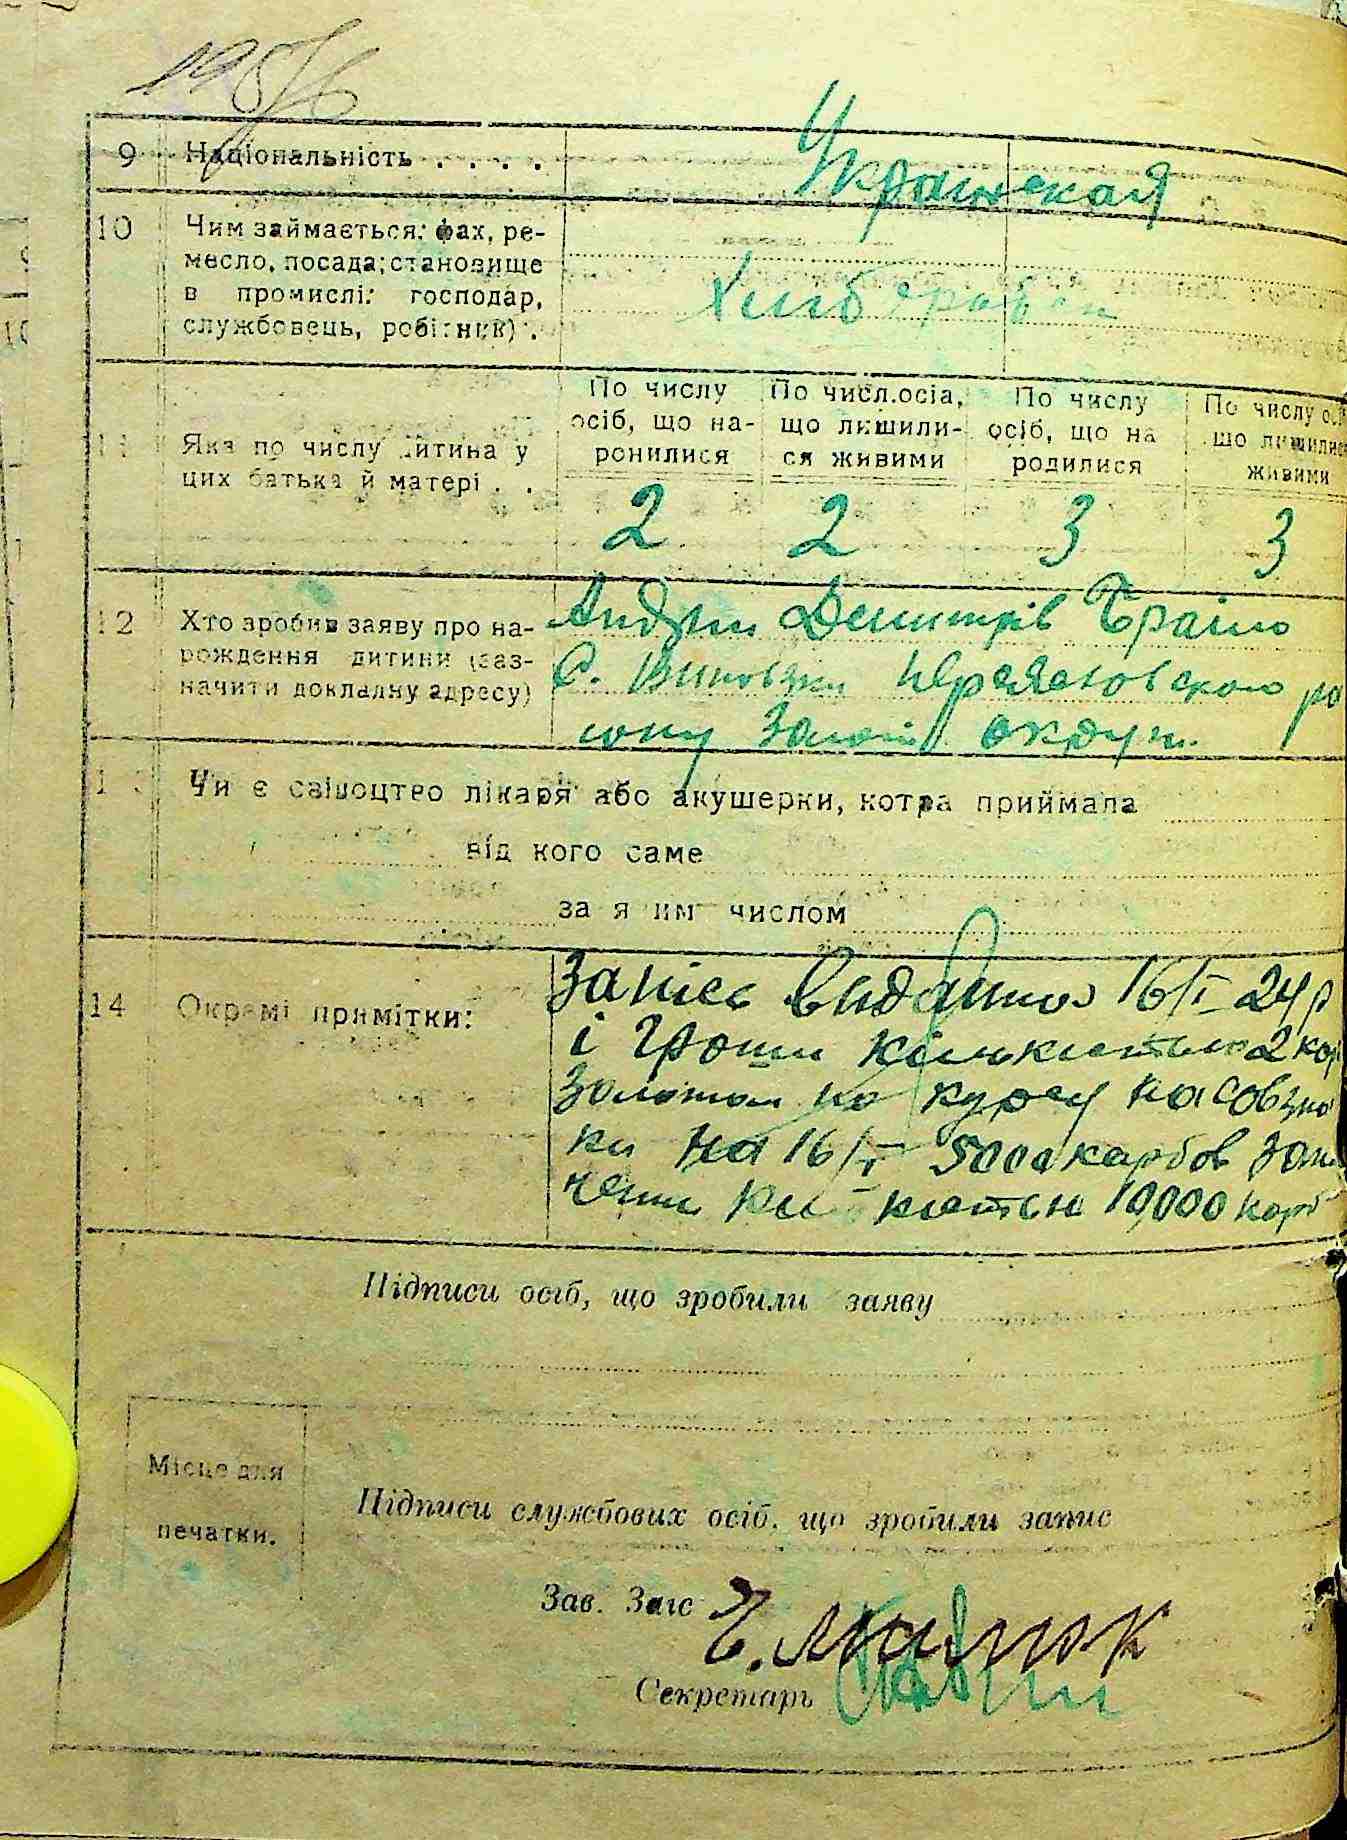 9 Національність . . . . Украинская
10 Чим займається: фах, ре-
месло, посада; становище
в промислі: господар,
службовець, робітник) .
Хлібороб
11 Яка по числу дитина у
цих батька й матері . .
По числу осіб, що на-ронилися
По числ.осіа, що лишили-ся живими
По числу осіб, що на родилися
По числу ос що лишилис живими
2 2 3 3
12 Хто зробив заяву про на-
рождення дитини (заз-
начити докладну адресу)
Андрій Дмитрів
С. ро
ону Золот округи
13 Чи є свідоцтво лікаря або акушерки, котра приймала
від кого саме
за яким числом
14 Окремі примітки:
Запісь 16/I 24 р
і гроши кількистью 2 кар
Золотом по курсу на совзна
ки на 16/I 5000 карбов
10,000 карб
Підписи осіб, що зробили заяву
Місце для
печатки.
Підписи службових осіб, що зробили запис
Зав. Загс
Секретарь